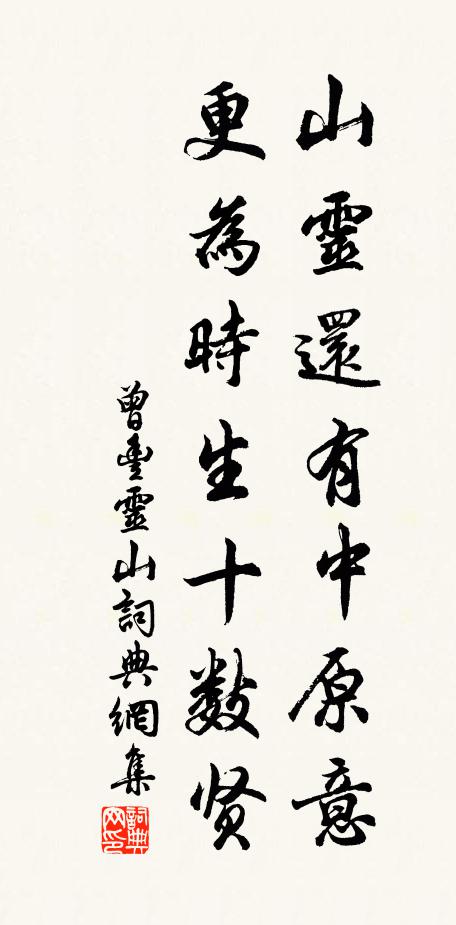 山靈還有中原意
更為時生十数贤
曾豊靈山詞典網集
詞典網印